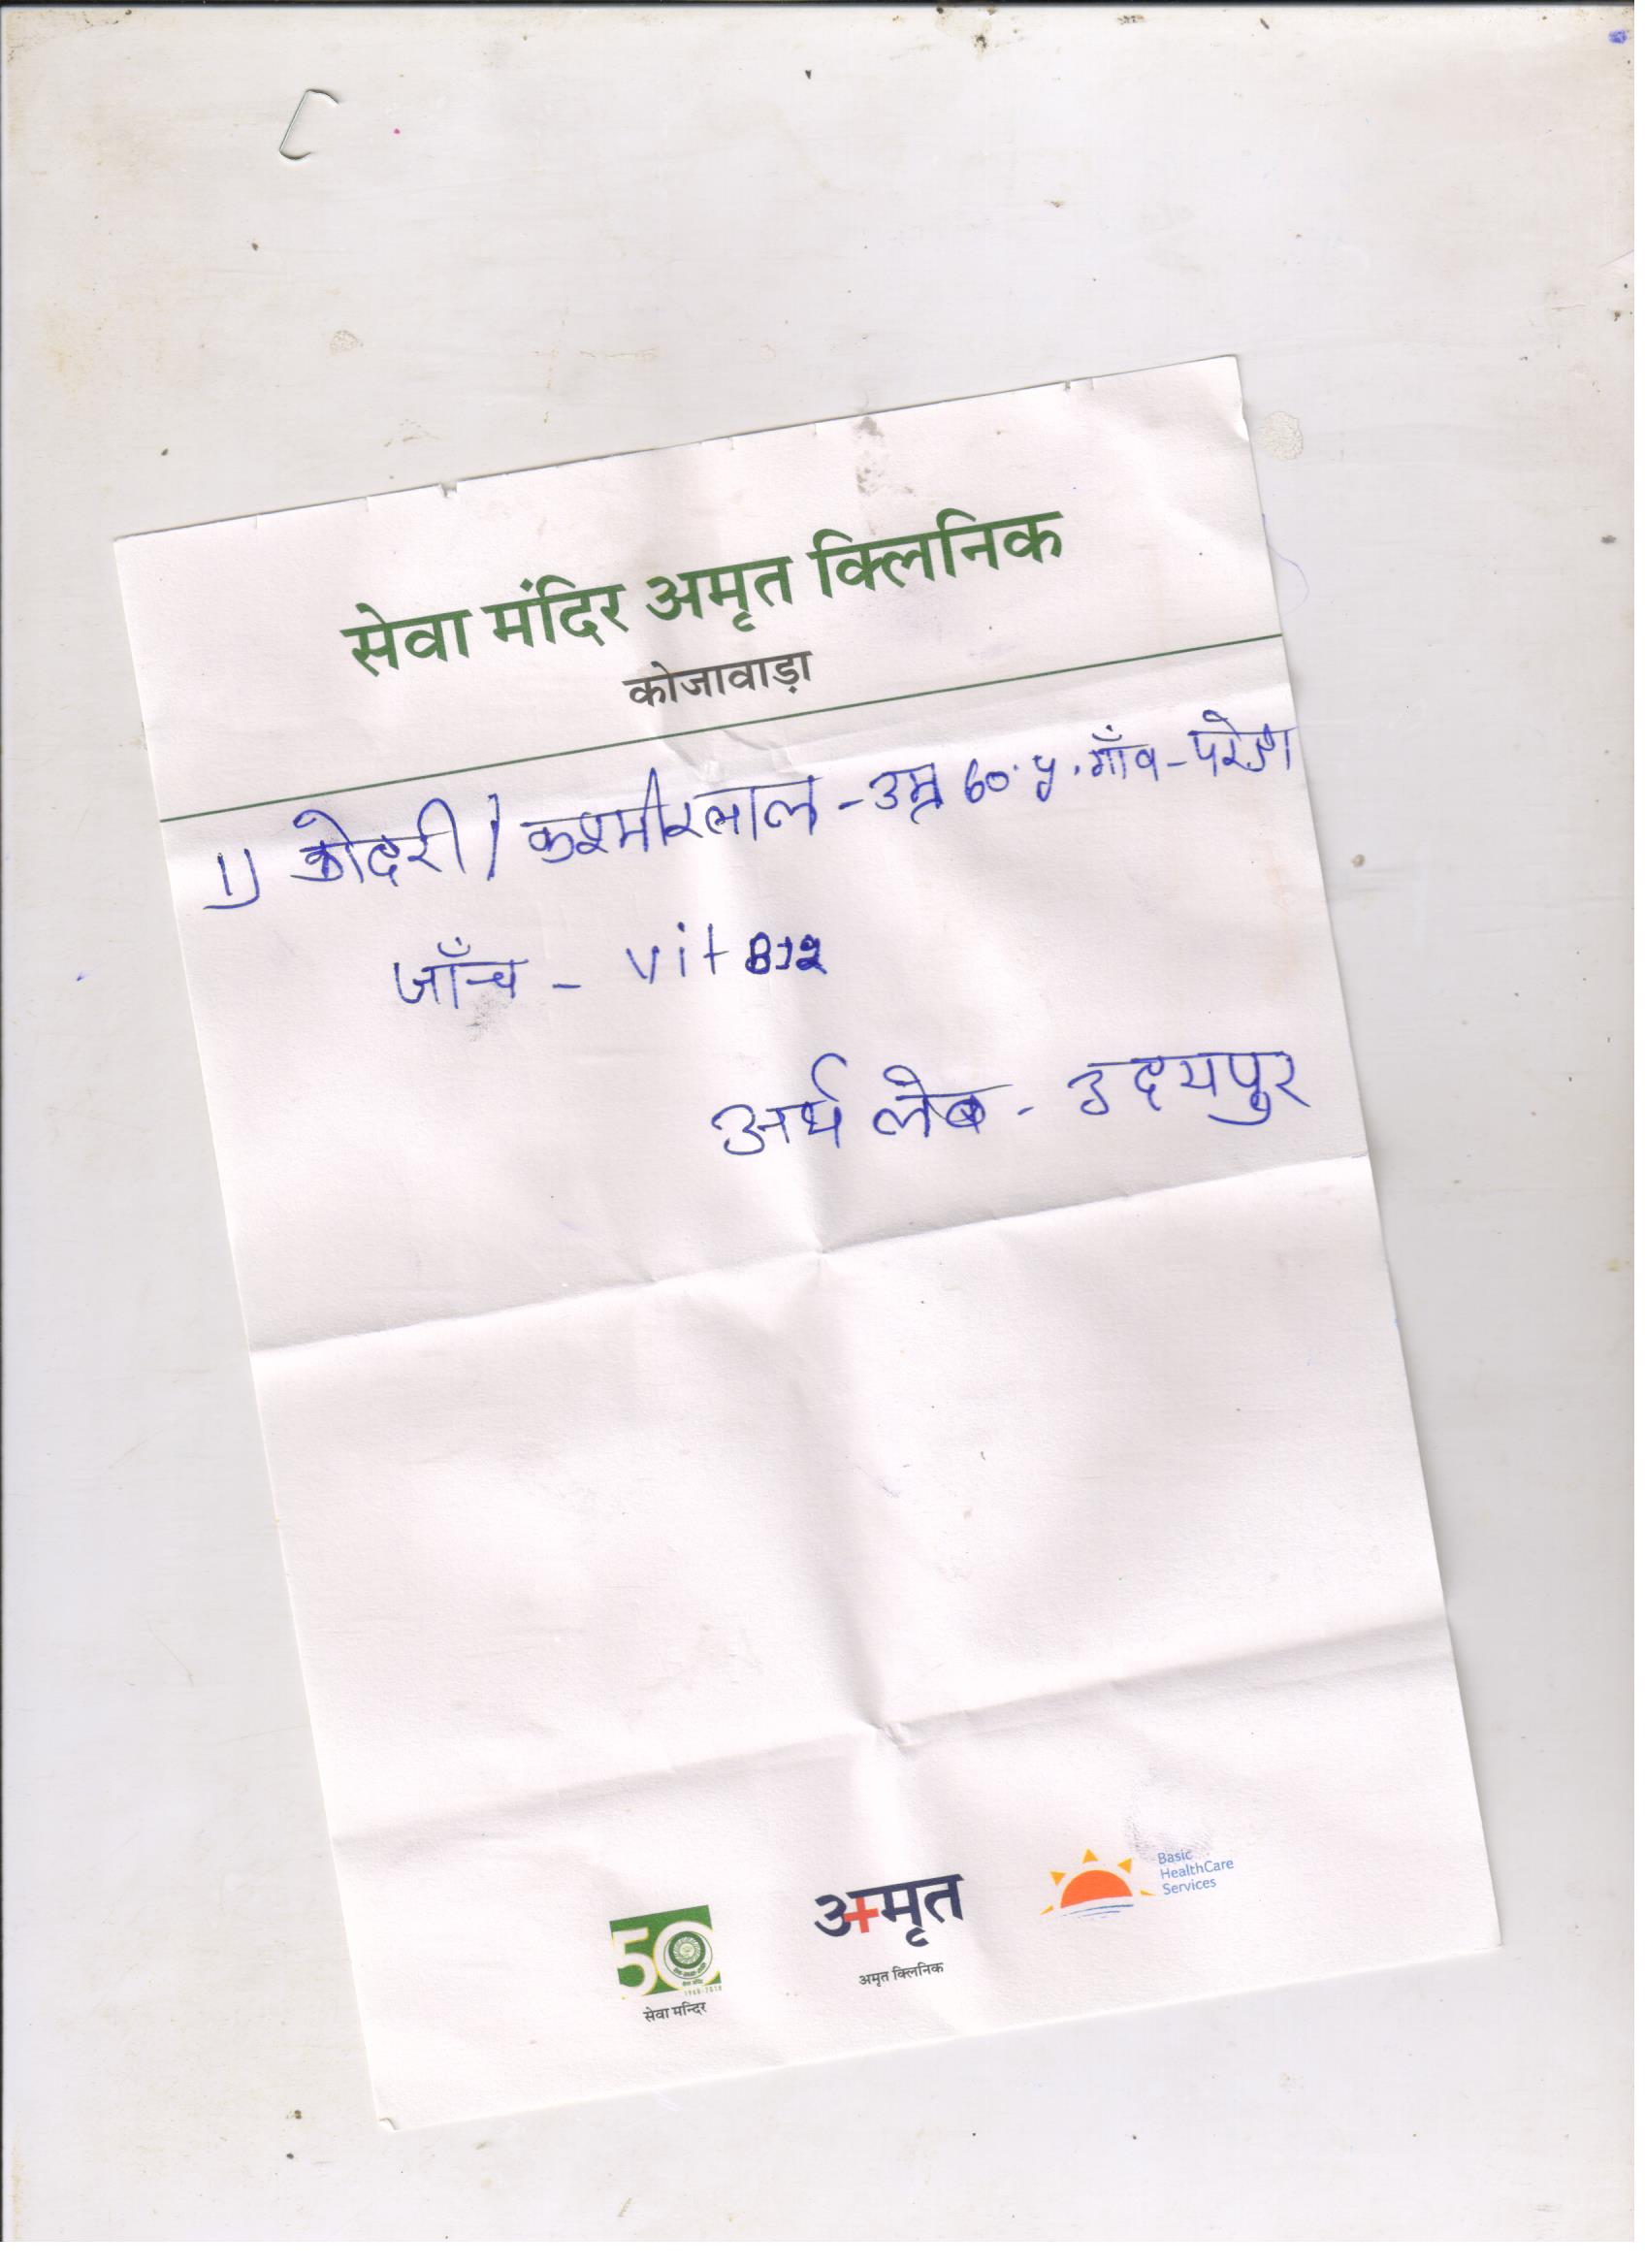 सेवा मंदिर अमृत क्लिनिक
कोजावाड़ा
1) कोदरी / कश्मीरलाल - उम्र 60 y. गाँव - परेडा
जाँच - vit B12
अर्थ लेब - उदयपुर
50
1968-2018
सेवा मन्दिर
अमृत
अमृत क्लिनिक
Basic
HealthCare
Services